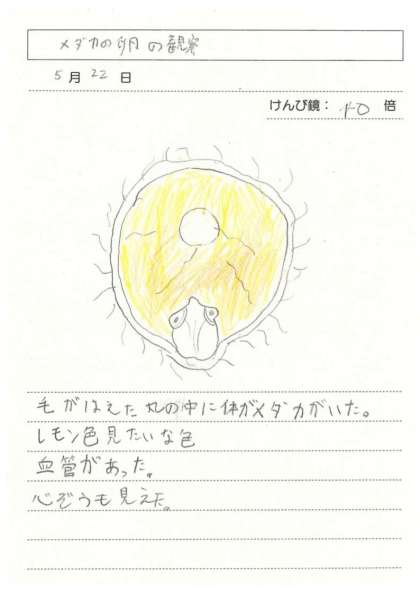 メダカの卵の観察
5月22日
けんび鏡：40倍
毛がはえた丸の中に体がメダカがいた。
レモン色見たいな色
血管があった。
心ぞうも見えた。